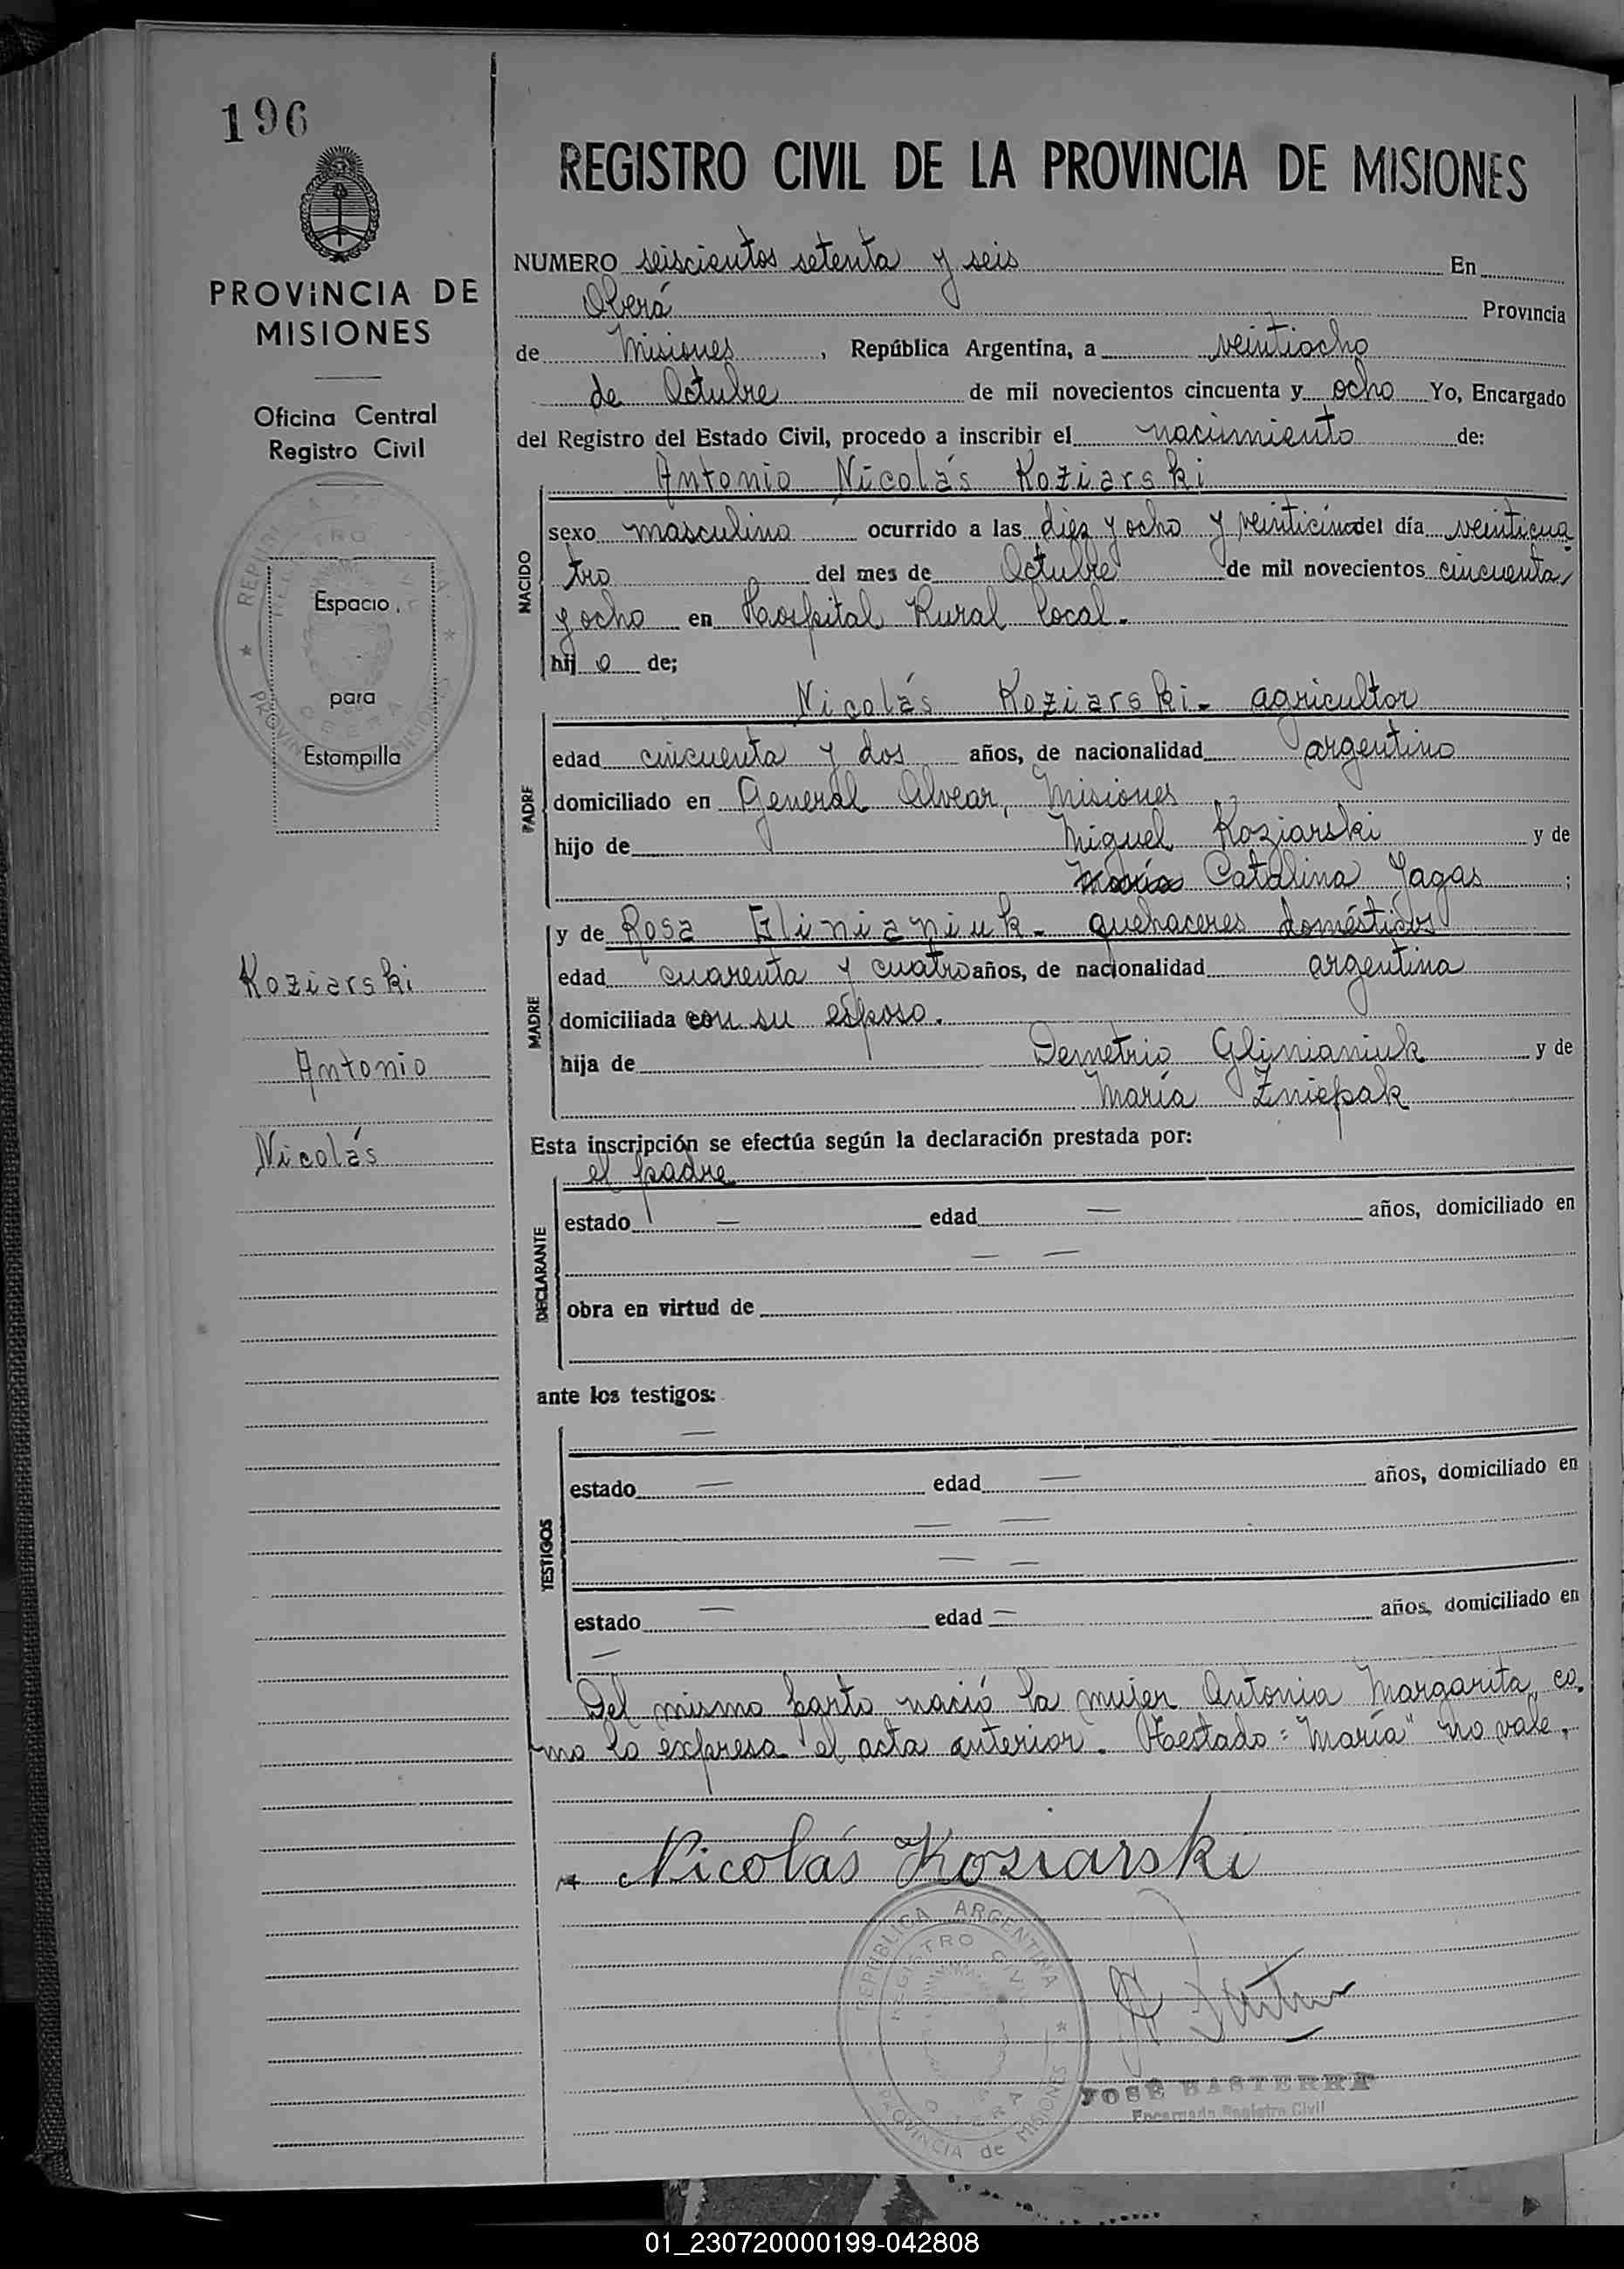 196
PROVINCIA DE
MISIONES
Oficina Central
Registro Civil
Espacio
para
Estampilla
Koziarski
Antonio
Nicolás
REGISTRO CIVIL DE LA PROVINCIA DE MISIONES
NUMERO seiscientos setenta y seis En
Oberá Provincia
de Misiones, República Argentina, a veintiocho
de Octubre de mil novecientos cincuenta y ocho Yo, Encargado
del Registro del Estado Civil, procedo a inscribir el nacimiento de:
NACIDO
Antonio Nicolás Koziarski
sexo masculino ocurrido a las diez y ocho y veinticinco del día veinticua
tro del mes de Octubre de mil novecientos cincuenta
y ocho en Hospital Rural local.
hijo de;
PADRE
Nicolás Koziarski - agricultor
edad cincuenta y dos años, de nacionalidad argentino
domiciliado en General Alvear, Misiones
hijo de Miguel Koziarski y de
María Catalina Yagas;
MADRE
y de Rosa Glinianiuk - quehaceres domésticos
edad cuarenta y cuatro años, de nacionalidad argentina
domiciliada con su esposo.
hija de Demetrio Glinianiuk y de
María Zniepak
Esta inscripción se efectúa según la declaración prestada por:
DECLARANTE
el padre
estado — edad — años, domiciliado en
— —
obra en virtud de
ante los testigos:
TESTIGOS
—
estado — edad — años, domiciliado en
— —
— —
estado — edad — años, domiciliado en
—
Del mismo parto nació la mujer Antonia Margarita, co-
mo lo expresa el acta anterior. Testado: "María" no vale.
Nicolás Koziarski
REPÚBLICA ARGENTINA
REGISTRO CIVIL
OBERA
PROVINCIA de MISIONES
JOSÉ BASTERRA
Encargado Registro Civil
01_230720000199-042808